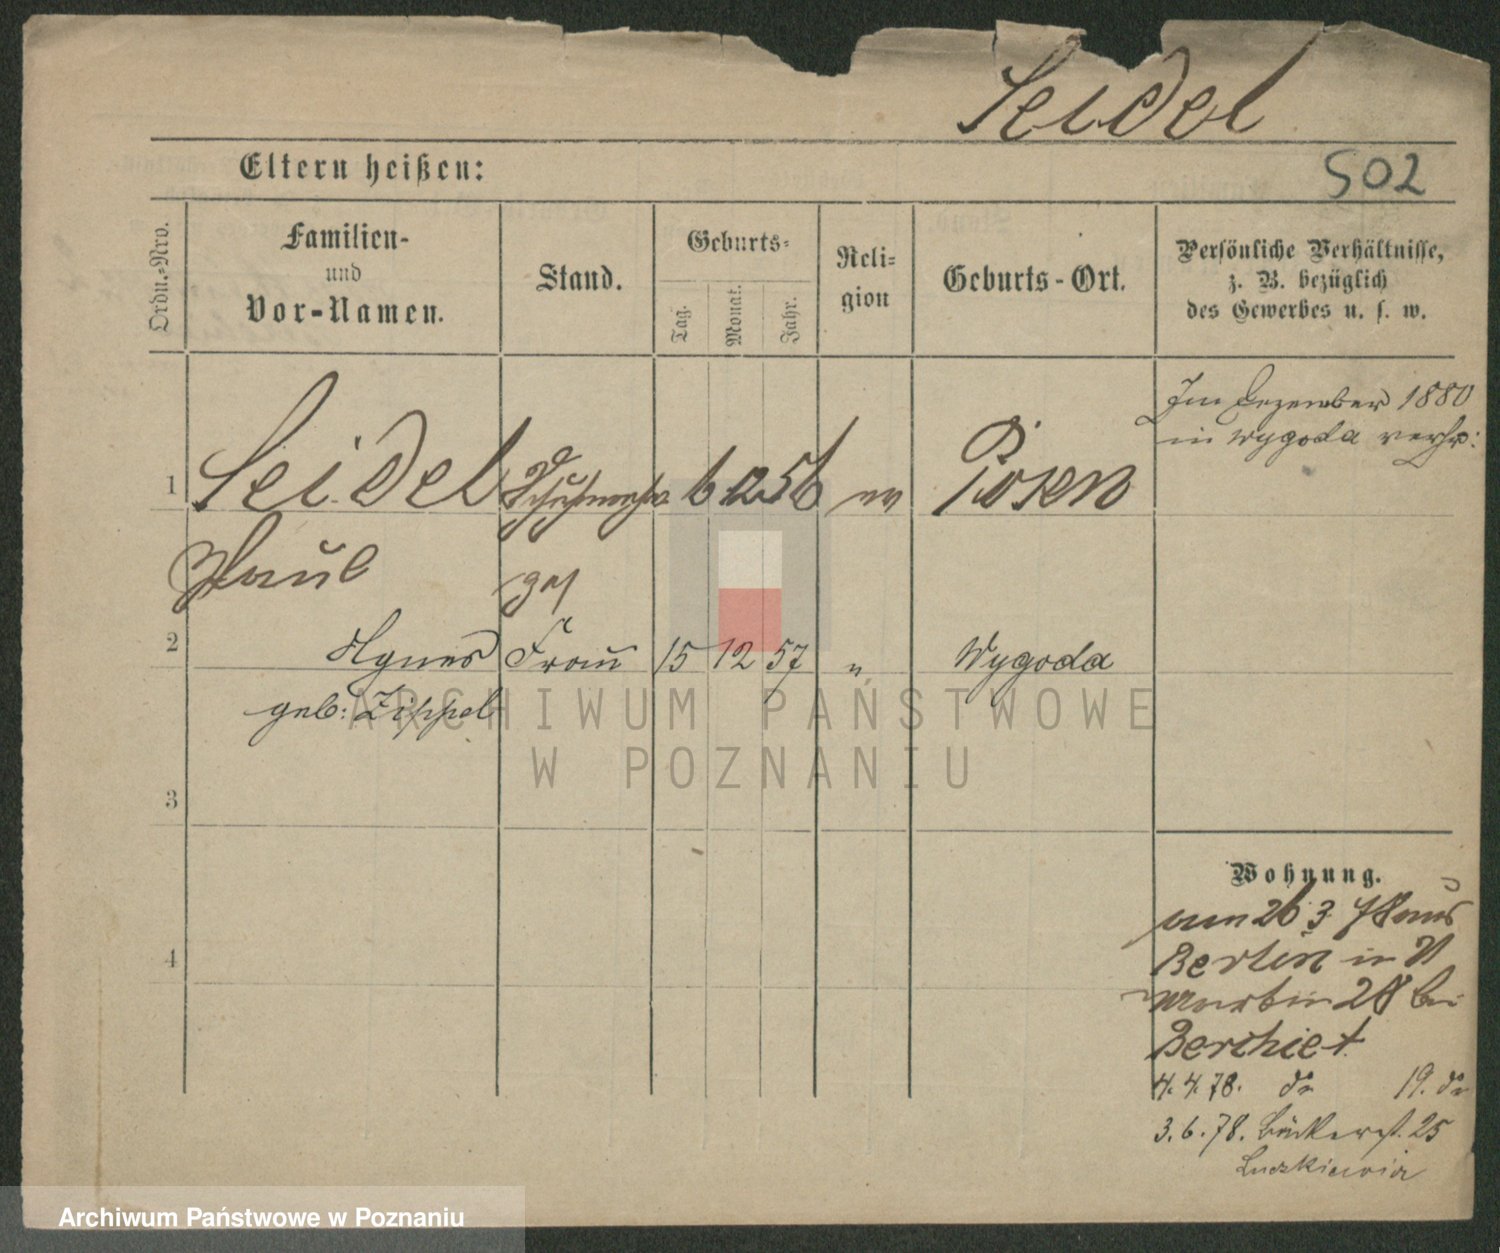 Seidel
502
Eltern heißen:
Ordn.-Nro.
Familien-
und
Vor-Namen.
Stand.
Geburts-
Tag.
Monat.
Jahr.
Reli-
gion
Geburts-Ort.
Persönliche Verhältnisse,
z. B. bezüglich
des Gewerbes u. s. w.
Im Dezember 1880
in Wygoda verh:
1 Seidel 6 12 56 ev Posen
Paul
ges
2 Agnes Frau 15 12 57 " Wygoda
geb: Zippel
3
4
Wohnung.
am 26 3 78 aus
Berlin in
Martin 28 bei
Berchiet
4.4.78. do 19. do
3.6.78. Bäckerst. 25
ARCHIWUM PAŃSTWOWE
W POZNANIU
Archiwum Państwowe w Poznaniu